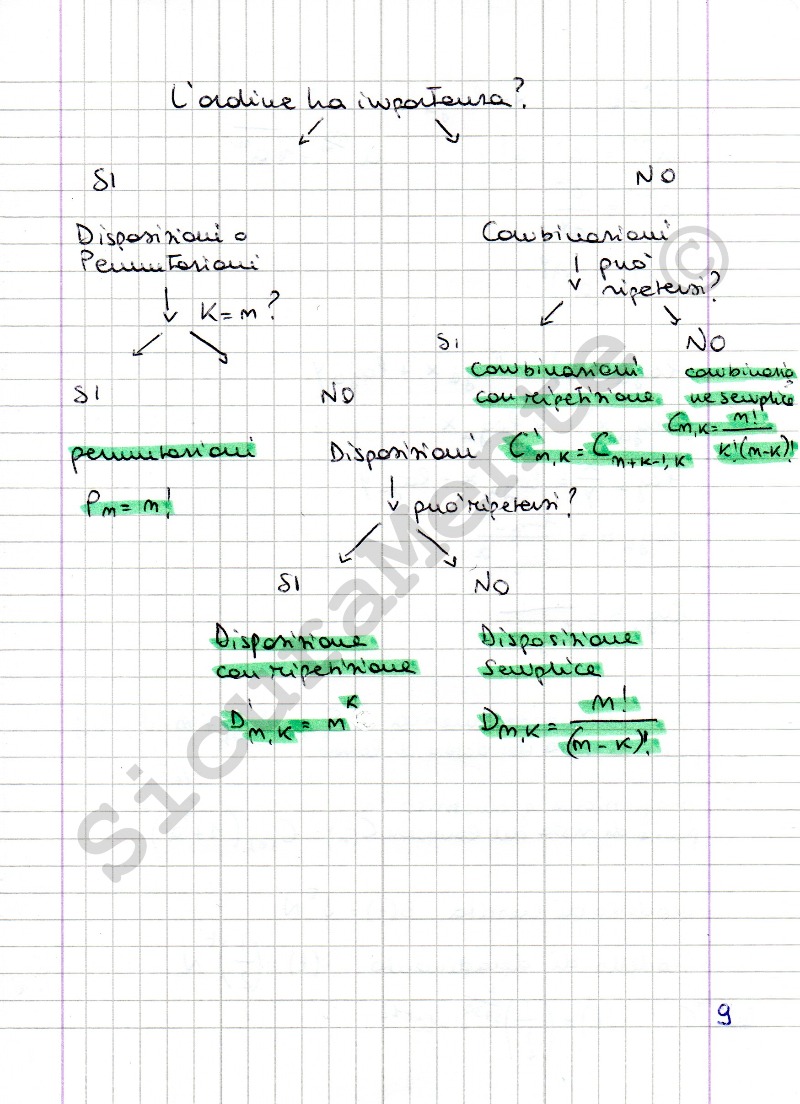 L'ordine ha importanza?
SI
NO
Disposizioni o
Permutazioni
K = n ?
Combinazioni
può
ripetersi?
SI
NO
SI
NO
combinazioni
con ripetizione
C'n,K = Cn+K-1,K
combinazio
ne semplice
Cn,K = n! / K!(n-K)!
permutazioni
Pn = n!
Disposizioni
può ripetersi?
SI
NO
Disposizione
con ripetizione
D'n,K = n^K
Disposizione
semplice
Dn,K = n! / (n-K)!
SicuraMente ©
9